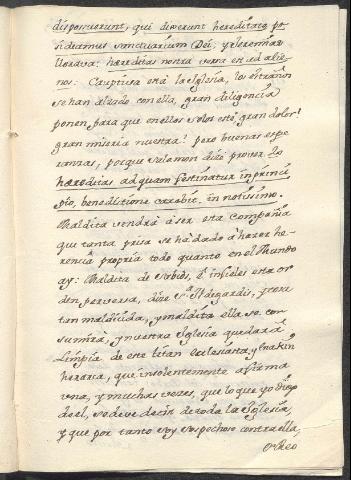 disposuerunt, qui dixerunt hereditate po
sideamus sanctuarium Dei, y Jeremias
llorava: hæreditas nostra versa est ad alie
nos: Cautiva está la Iglesia, los extraños
se han alzado con ella, gran diligencia
ponen para que en ellos solos esté gran dolor!
gran miseria nuestra! pero buenas espe
ranzas, porque Salomon dixo prover. 20
hæreditas ad quam festinatur in princi
pio, benedictione carebit, in novissimo.
Maldita vendrá á ser esta Compañia
que tanta prisa se há dado á hazer he
rencia propria todo quanto en el Mundo
ay: Maldita de Sabios, de infieles esta or
den perversa, dixe Sta. Ildegardis, y cosa
tan maldicida, y maldita ella se con
sumirá, y nuestra Iglesia quedará
limpia de este titan eclesiastico
herarca, que insolentemente afirma
una, y muchas vezes, que lo que yo dixe
de el, se deve decir de toda la Iglesia,
y que por tanto soy sospechoso contra ella,